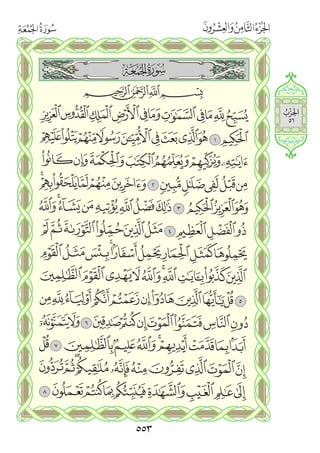 الجزء الثامن والعشرون
سورة الجمعة
سُورَةُ الجُمُعَةِ
بِسْمِ اللَّهِ الرَّحْمَٰنِ الرَّحِيمِ
يُسَبِّحُ لِلَّهِ مَا فِي السَّمَٰوَٰتِ وَمَا فِي الْأَرْضِ الْمَلِكِ الْقُدُّوسِ الْعَزِيزِ
الْحَكِيمِ ١ هُوَ الَّذِي بَعَثَ فِي الْأُمِّيِّـۧنَ رَسُولًا مِّنْهُمْ يَتْلُوا عَلَيْهِمْ
ءَايَٰتِهِۦ وَيُزَكِّيهِمْ وَيُعَلِّمُهُمُ الْكِتَٰبَ وَالْحِكْمَةَ وَإِن كَانُوا
مِن قَبْلُ لَفِي ضَلَٰلٍ مُّبِينٍ ٢ وَءَاخَرِينَ مِنْهُمْ لَمَّا يَلْحَقُوا بِهِمْ
وَهُوَ الْعَزِيزُ الْحَكِيمُ ٣ ذَٰلِكَ فَضْلُ اللَّهِ يُؤْتِيهِ مَن يَشَآءُ وَاللَّهُ
ذُو الْفَضْلِ الْعَظِيمِ ٤ مَثَلُ الَّذِينَ حُمِّلُوا التَّوْرَىٰةَ ثُمَّ لَمْ
يَحْمِلُوهَا كَمَثَلِ الْحِمَارِ يَحْمِلُ أَسْفَارًا بِئْسَ مَثَلُ الْقَوْمِ
الَّذِينَ كَذَّبُوا بِـَٔايَٰتِ اللَّهِ وَاللَّهُ لَا يَهْدِي الْقَوْمَ الظَّٰلِمِينَ
٥ قُلْ يَٰٓأَيُّهَا الَّذِينَ هَادُوٓا إِن زَعَمْتُمْ أَنَّكُمْ أَوْلِيَآءُ لِلَّهِ مِن
دُونِ النَّاسِ فَتَمَنَّوُا الْمَوْتَ إِن كُنتُمْ صَٰدِقِينَ ٦ وَلَا يَتَمَنَّوْنَهُۥٓ
أَبَدًۢا بِمَا قَدَّمَتْ أَيْدِيهِمْ وَاللَّهُ عَلِيمٌۢ بِالظَّٰلِمِينَ ٧ قُلْ
إِنَّ الْمَوْتَ الَّذِي تَفِرُّونَ مِنْهُ فَإِنَّهُۥ مُلَٰقِيكُمْ ثُمَّ تُرَدُّونَ
إِلَىٰ عَٰلِمِ الْغَيْبِ وَالشَّهَٰدَةِ فَيُنَبِّئُكُم بِمَا كُنتُمْ تَعْمَلُونَ ٨
الحزب
٥٦
٥٥٣